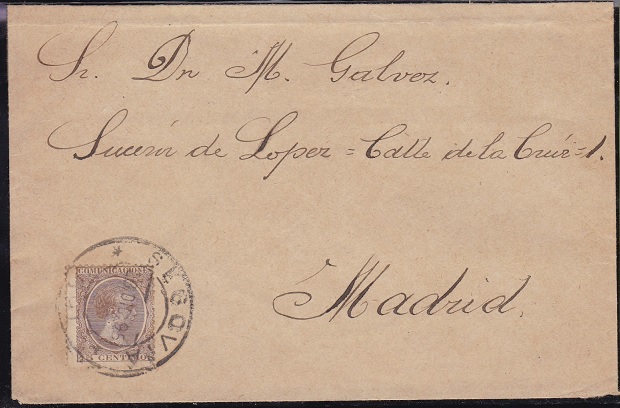 Sr. Dn M. Galvez.
Sucesor de Lopez = Calle de la Cruz = 1.
Madrid.
COMUNICACIONES
CENTIMOS
SEGOVIA